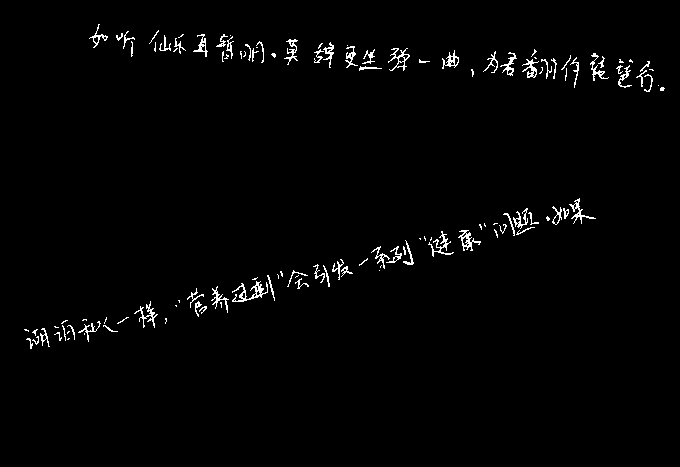 如听仙乐耳暂明。莫辞更坐弹一曲，为君翻作琵琶行。
湖泊和人一样，“营养过剩”会引发一系列“健康”问题。如果